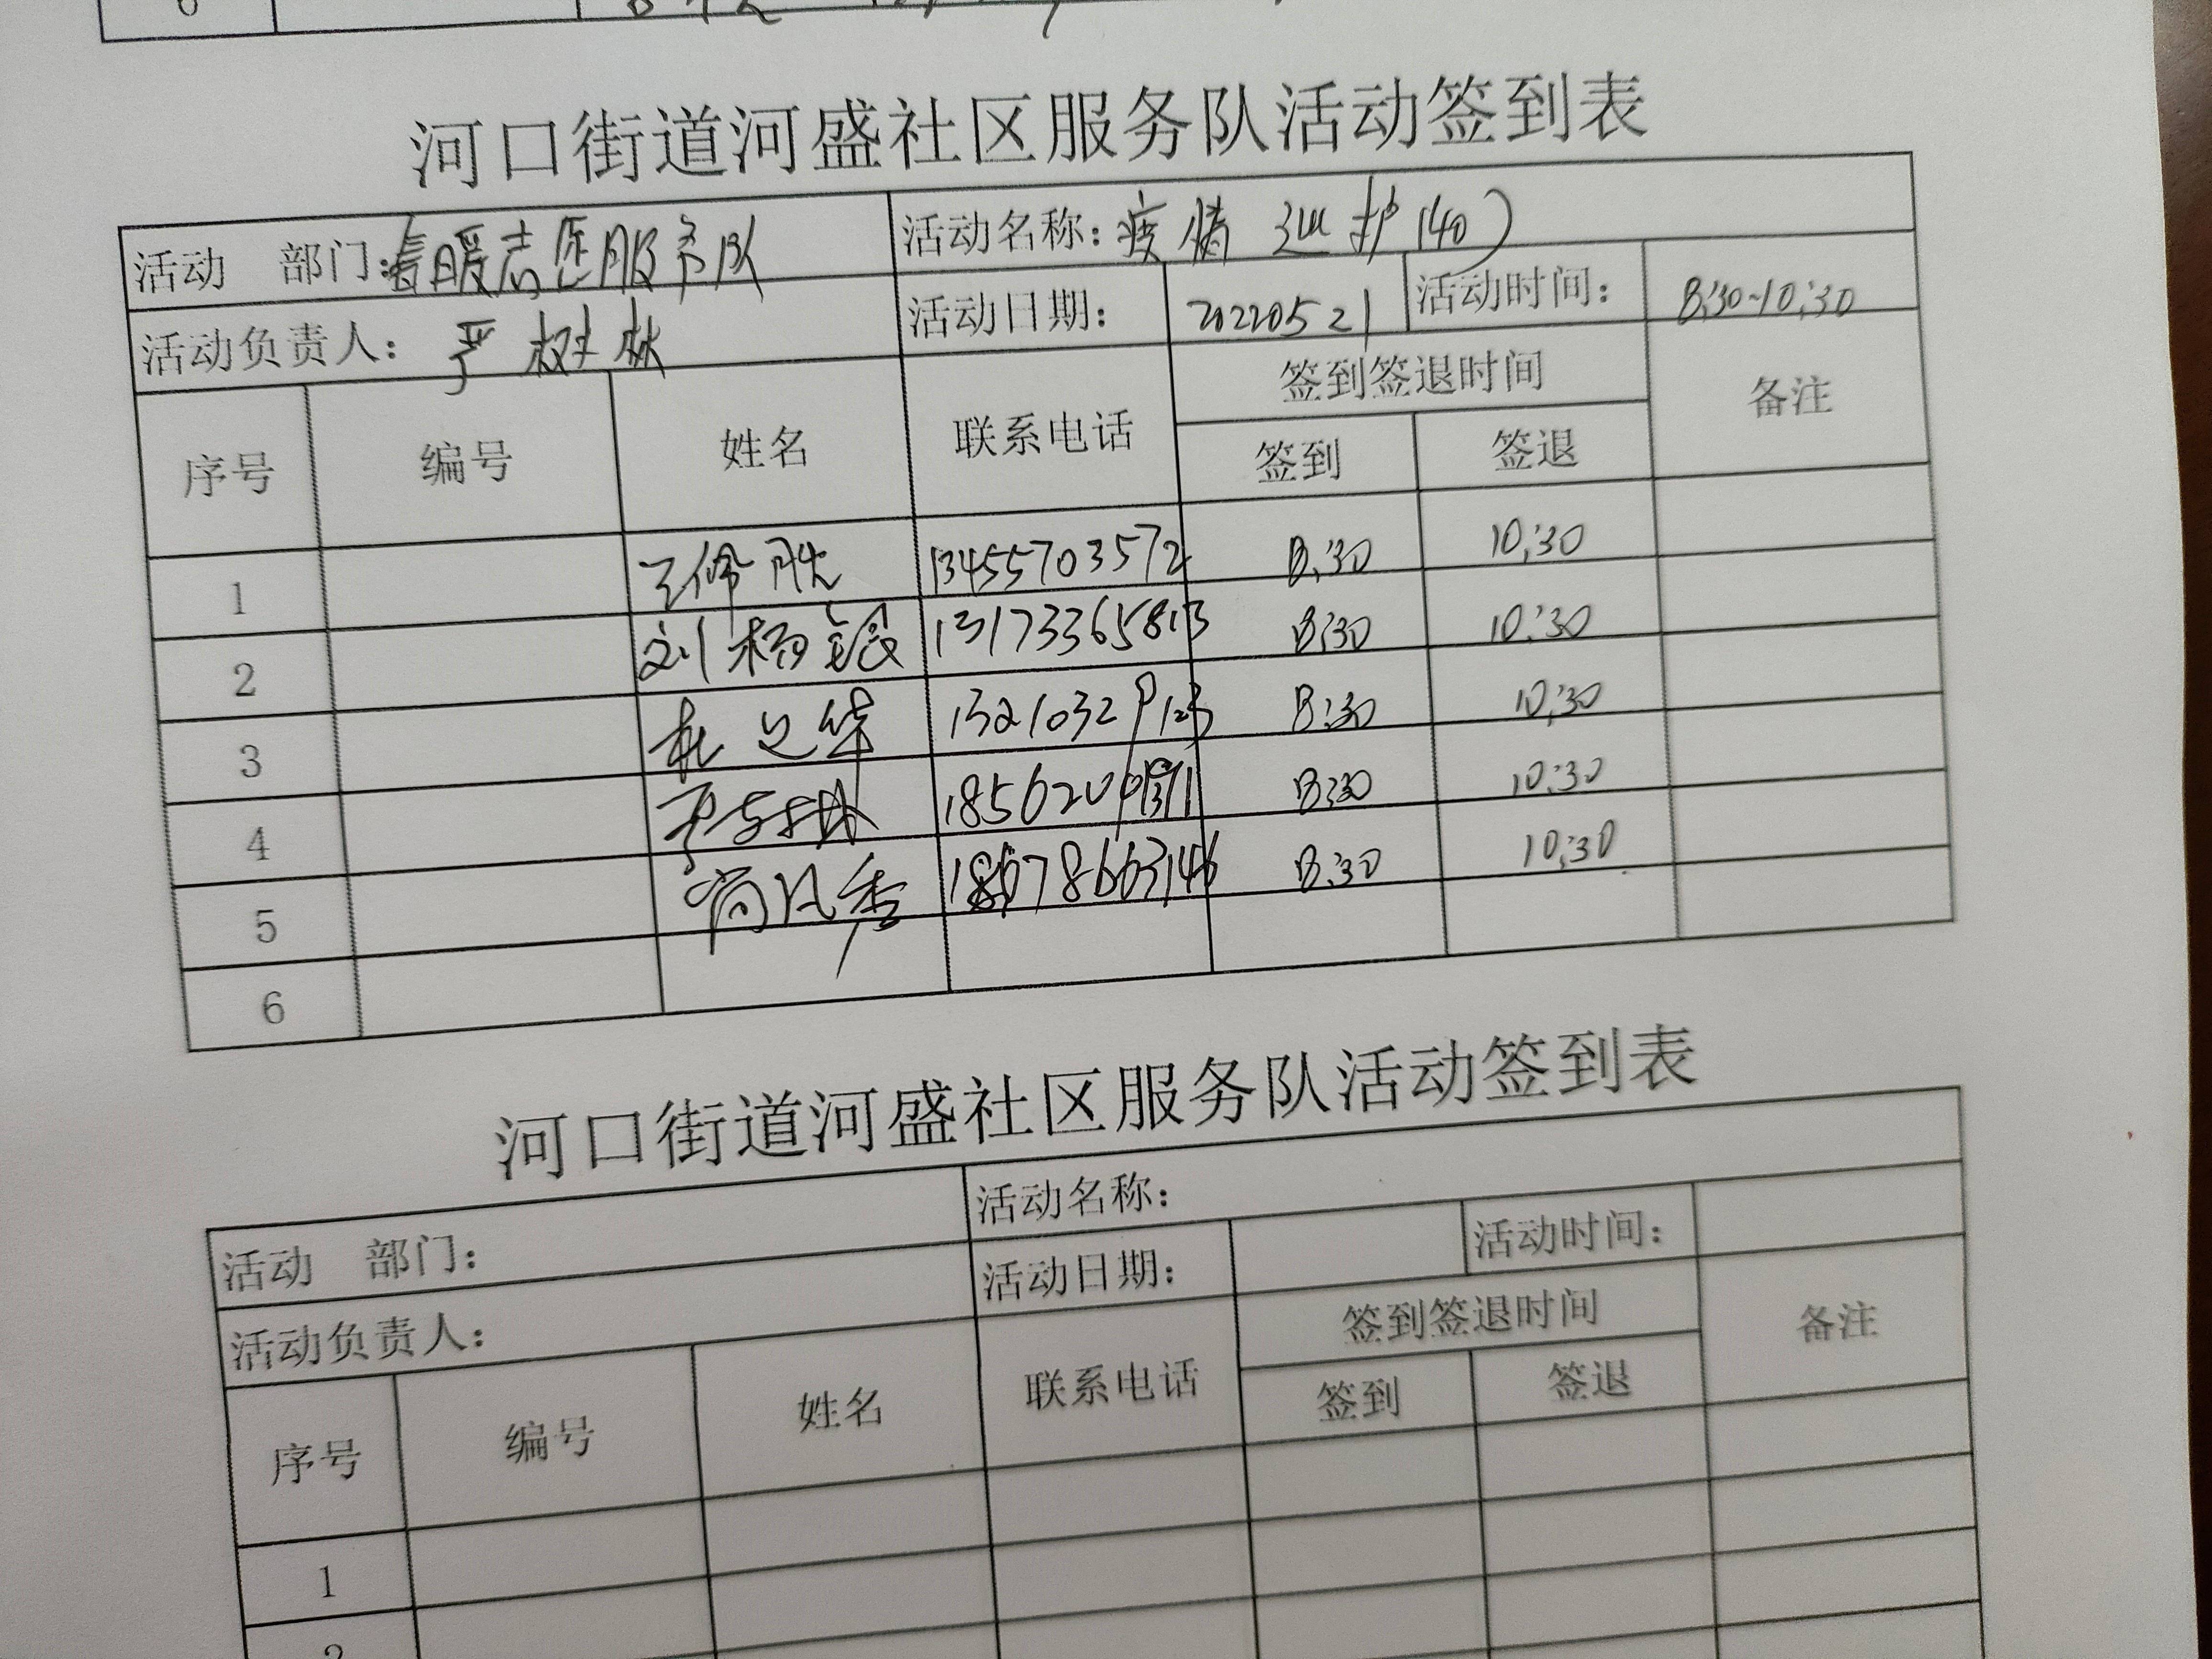 6
河口街道河盛社区服务队活动签到表
活动 部门:春暖志愿服务队 活动名称:疫情巡护(40)
活动负责人: 严树林 活动日期: 20220521 活动时间: 8:30~10:30
签到签退时间
序号 编号 姓名 联系电话 签到 签退 备注
1 13455703572 8:30 10:30
2 刘杨银 13173365813 8:30 10:30
3 杜立华 8:30 10:30
4 严树林 8:30 10:30
5 18678663146 8:30 10:30
6
河口街道河盛社区服务队活动签到表
活动 部门: 活动名称:
活动负责人: 活动日期: 活动时间:
签到签退时间
序号 编号 姓名 联系电话 签到 签退 备注
1
2